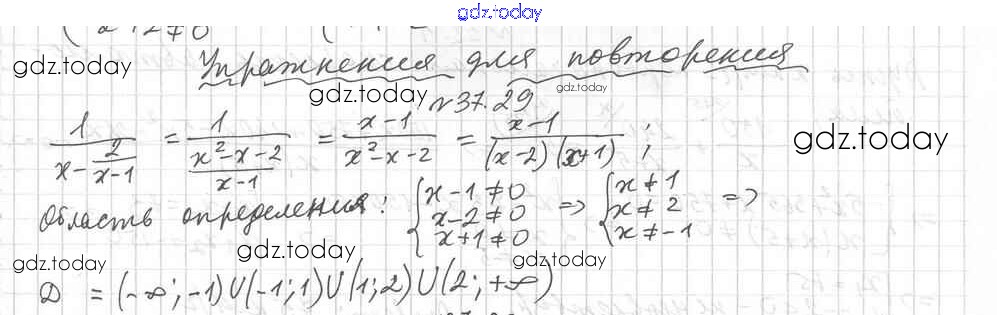 gdz.today
Упражнения для повторения
gdz.today
gdz.today gdz.today
№37.29
1/(x - 2/(x-1)) = 1/((x²-x-2)/(x-1)) = (x-1)/(x²-x-2) = (x-1)/((x-2)(x+1)) ;
gdz.today
Область определения: { x-1≠0 x-2≠0 x+1≠0 => { x≠1 x≠2 x≠-1 =>
gdz.today gdz.today gdz.today
D = (-∞;-1)U(-1;1)U(1;2)U(2;+∞)